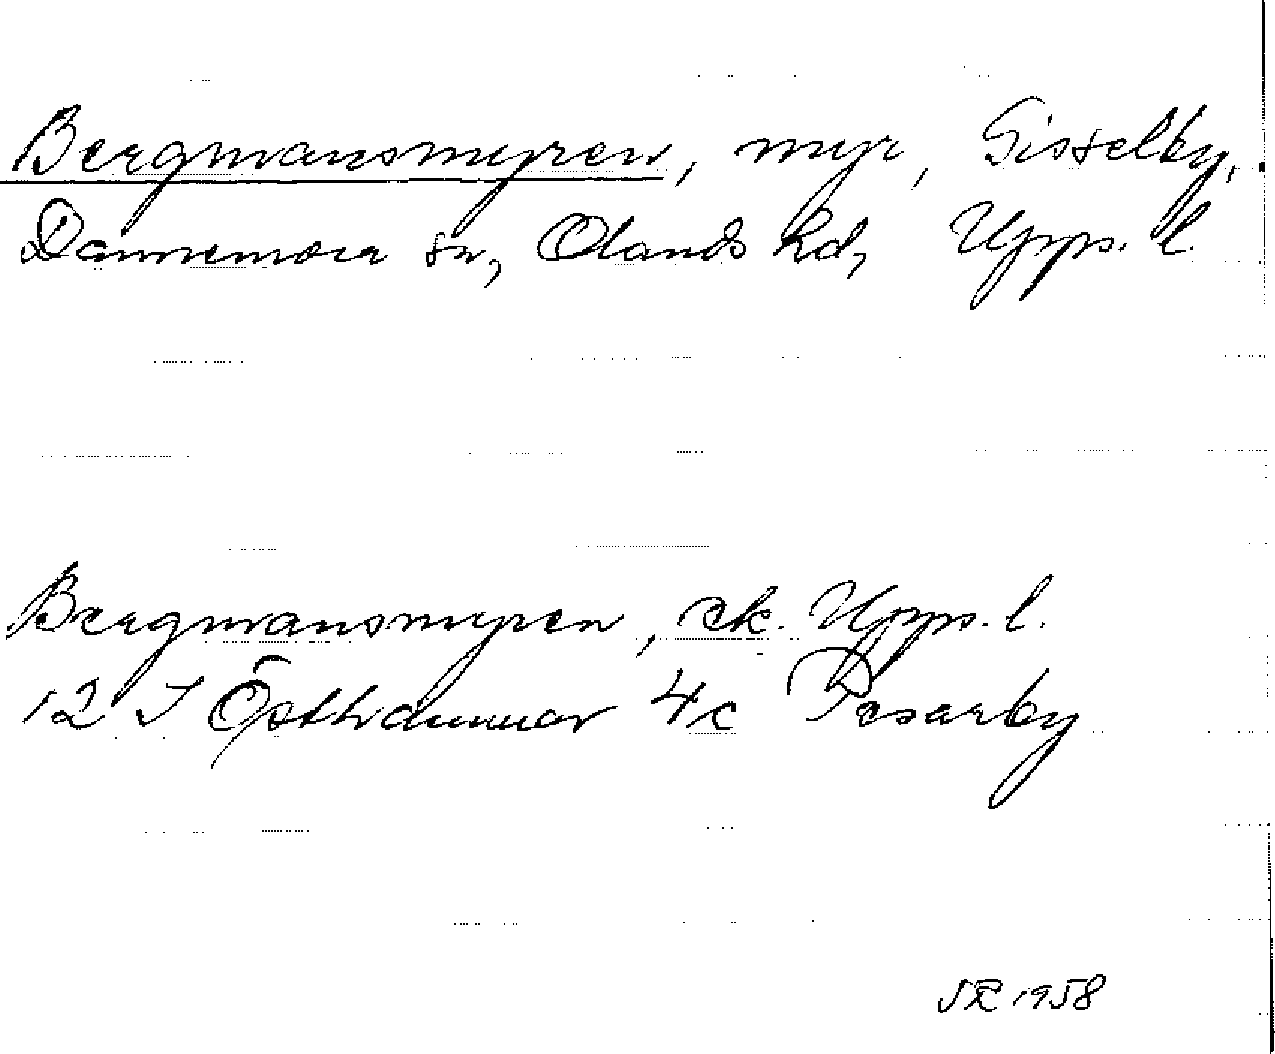 Bergmansmyren, myr, Gisselby,
Dannemora sn, Olands hd, Upps. l.
Bergmansmyren, ek. Upps. l.
12 I Östhammar 4c Pesarby
1958